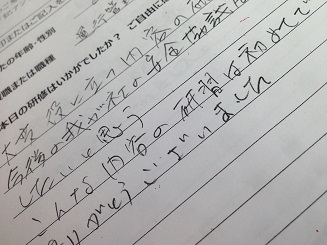 なたの年齢・性別
職または職種
本日の研修はいかがでしたか？ ご自由に
大変役に立つ内容の
今後の我が社の安全協議
していと思う
こんな内容の研修は初めてで
ありがとうございました